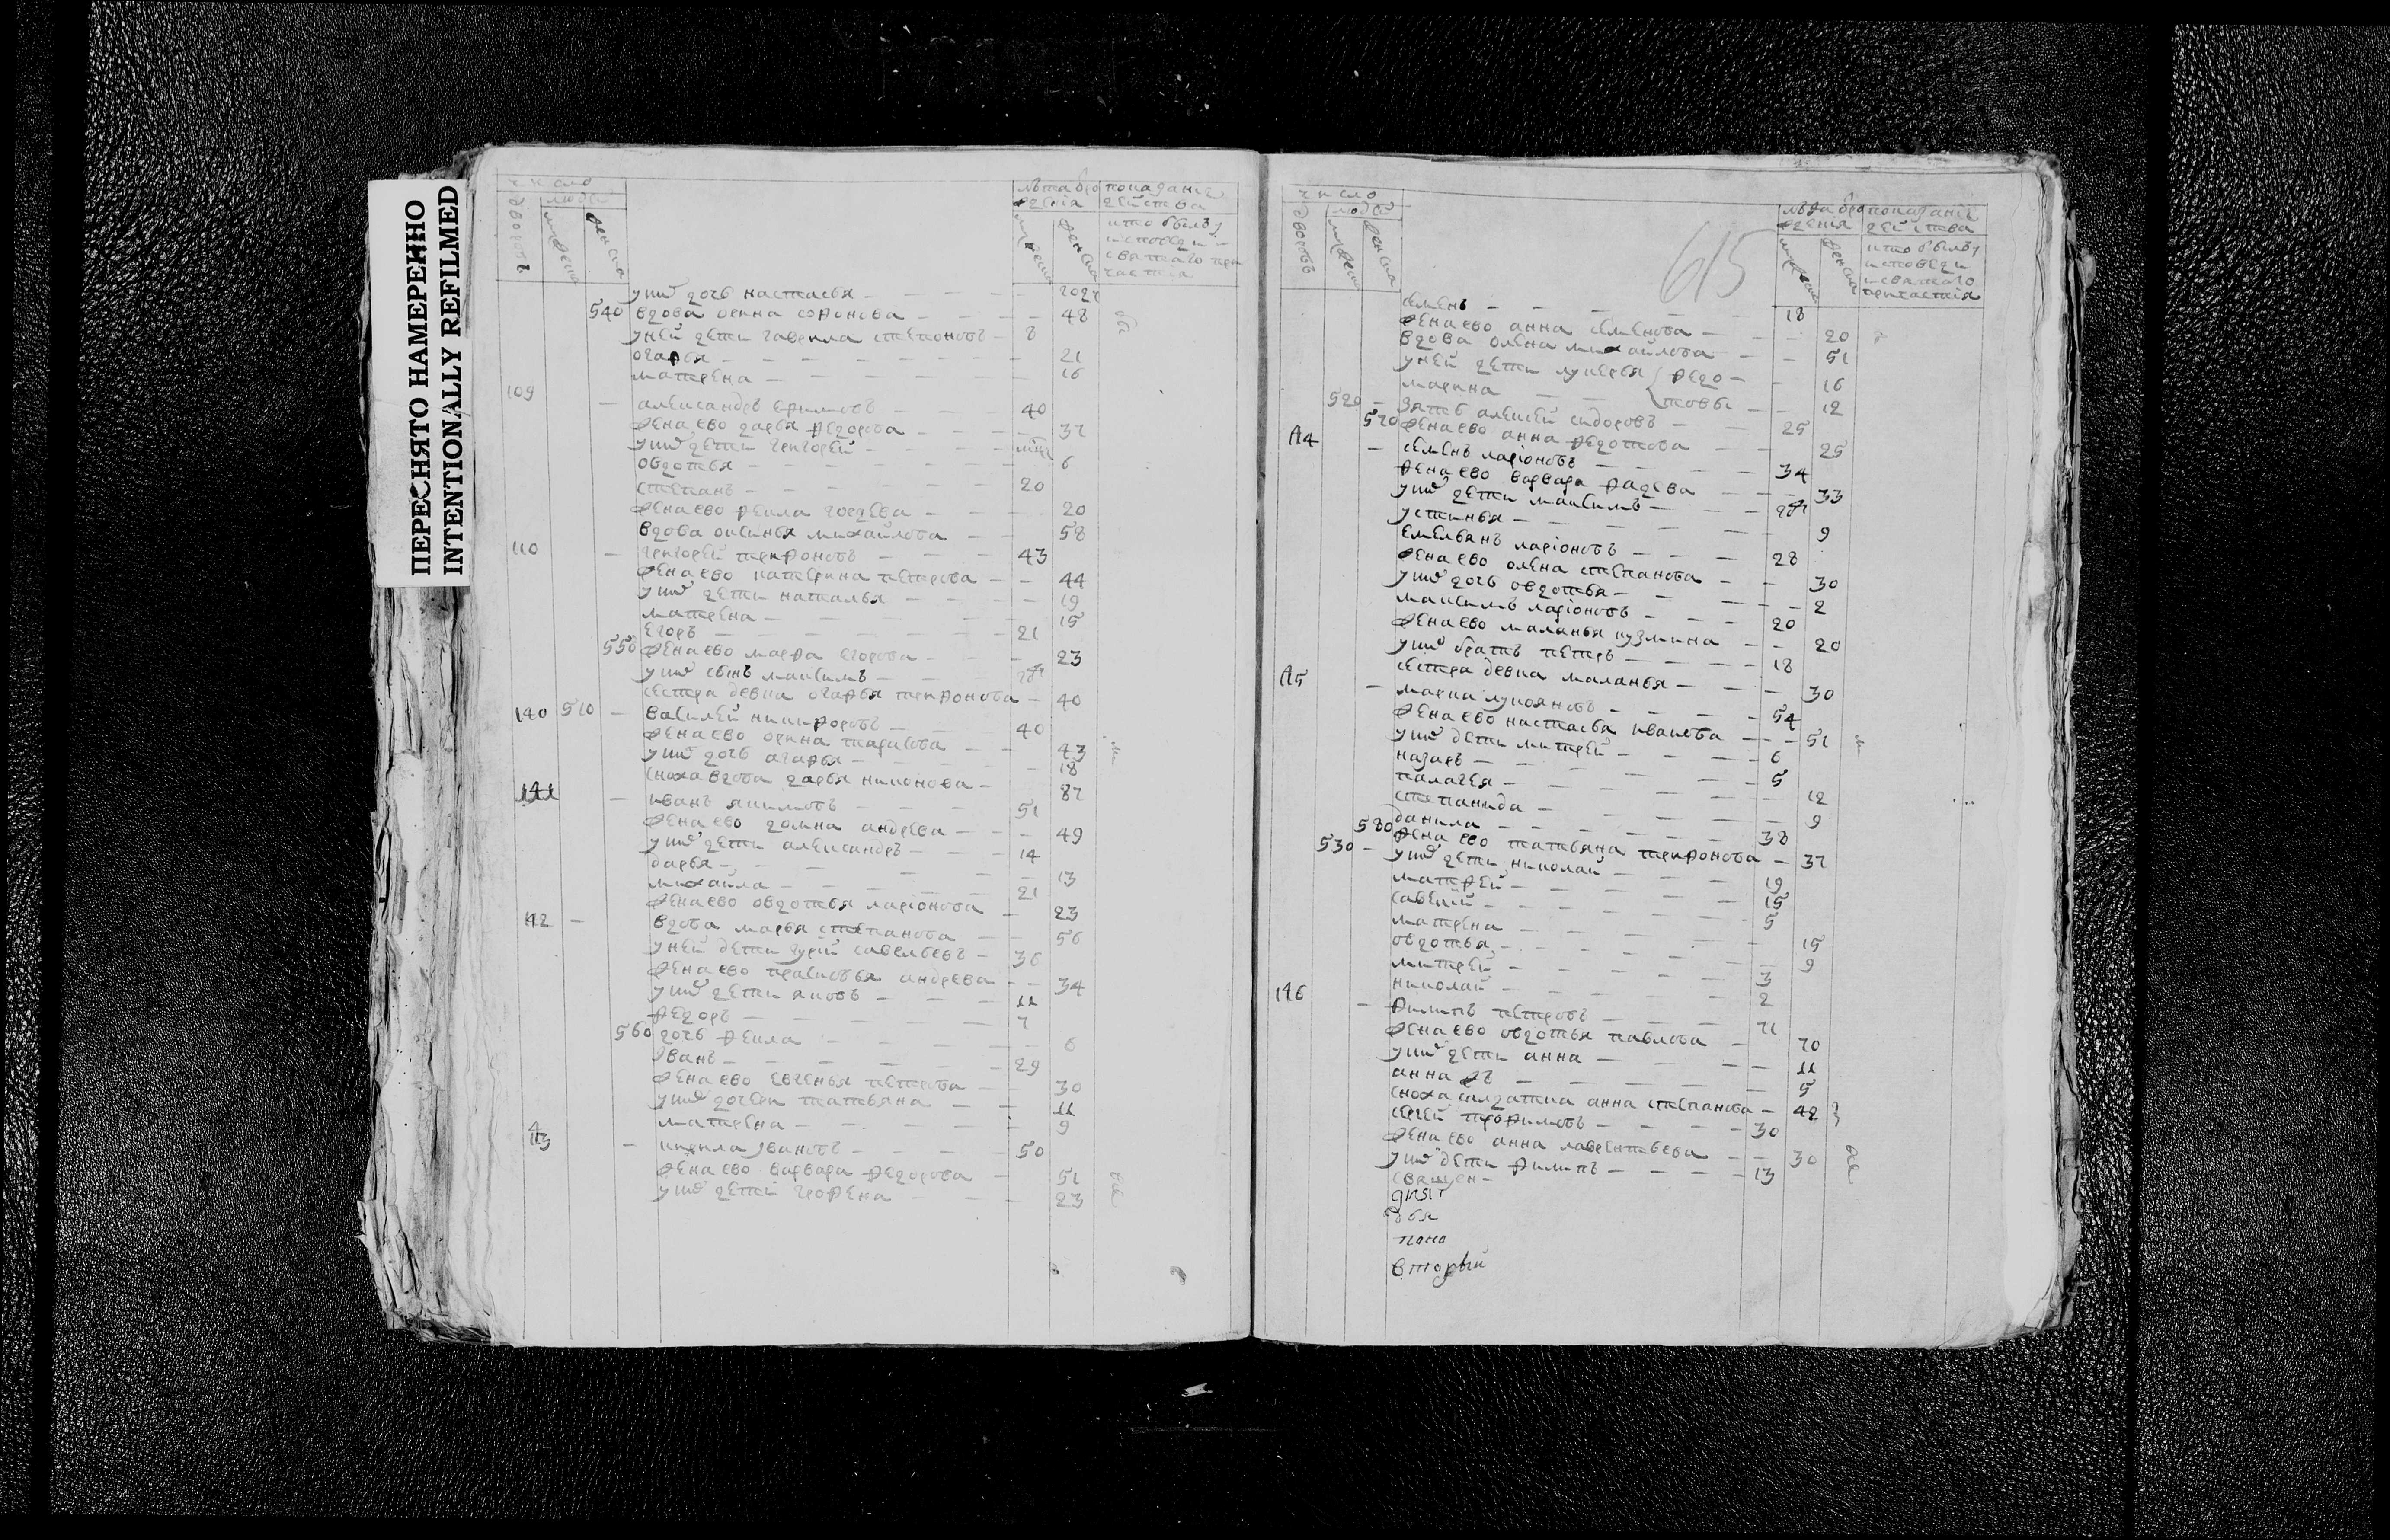 ПЕРЕСНЯТО НАМЕРЕННО
INTENTIONALLY REFILMED
число
людей
дворовъ
мужеска
женска
лѣта рожденія
показаніе действа
мужеска
женска
кто былъ у исповеди и святаго причастія
у них дочь настасья
540 вдова орина софонова 48
у ней дети гаврила степоновъ 8
огафья 21
матрена 16
109 александръ ефимовъ 40
жена ево дарья федорова 37
у них дети григорей
овдотья 6
степанъ 20
жена ево фекла гордева 20
вдова оксинья михайлова 58
110 григорей трифоновъ 43
жена ево катерина петрова 44
у них дети наталья 19
матрена 15
егоръ 21
550 жена ево марфа егорова 23
у них сынъ максимъ
сестра девка огафья трифонова 40
140 510 василей никифоровъ 40
жена ево орина тарасова 43
у них дочь агафья 18
сноха вдова дарья никонова 87
141 иванъ якимовъ 51
жена ево домна андрева 49
у них дети александръ 14
дарья 13
михайла 21
жена ево овдотья ларионова 23
142 вдова марья степанова 56
у ней дети гурей савельевъ 36
жена ево прасковья андрева 34
у них дети яковъ 11
федоръ 7
560 дочь фекла 6
иванъ 29
жена ево евгенья петрова 30
у них дочери татьяна 11
матрена 9
кирила ивановъ 50
жена ево варвара федорова 51
у них дети грофена 23
615
число
людей
дворовъ
мужеска
женска
лѣта рожденія
показаніе действа
мужеска
женска
кто былъ у исповеди и святаго причастія
семенъ 18
жена ево анна семенова 20
вдова олена михайлова 51
у ней дети лукерья федо 16
марина товы 12
520 зять алексей сидоровъ 25
570 жена ево анна федотова 25
144 семенъ ларионовъ 34
жена ево варвара фадева 33
у них дети максимъ
устинья 9
емельянъ ларионовъ 28
жена ево олена степанова 30
у них дочь овдотья 2
максимъ ларионовъ 20
жена ево маланья кузмина 20
у них братъ петръ 18
сестра девка маланья 30
145 марка лукояновъ 54
жена ево настасья иванова 51
у них дети митрей 6
назаръ 5
палагея 12
степанида 9
данила 38
580 жена ево татьяна трифонова 37
530 у них дети николай 19
матфей 15
савелий 5
матрена 15
овдотья 9
митрей 3
николай 2
146 филипъ петровъ 71
жена ево овдотья павлова 70
у них дети анна 11
анна 5
сноха солдатка анна степанова 42
сергей трофимовъ 30
жена ево анна лаврентьева 30
у них дети филипъ 13
священ
вторый